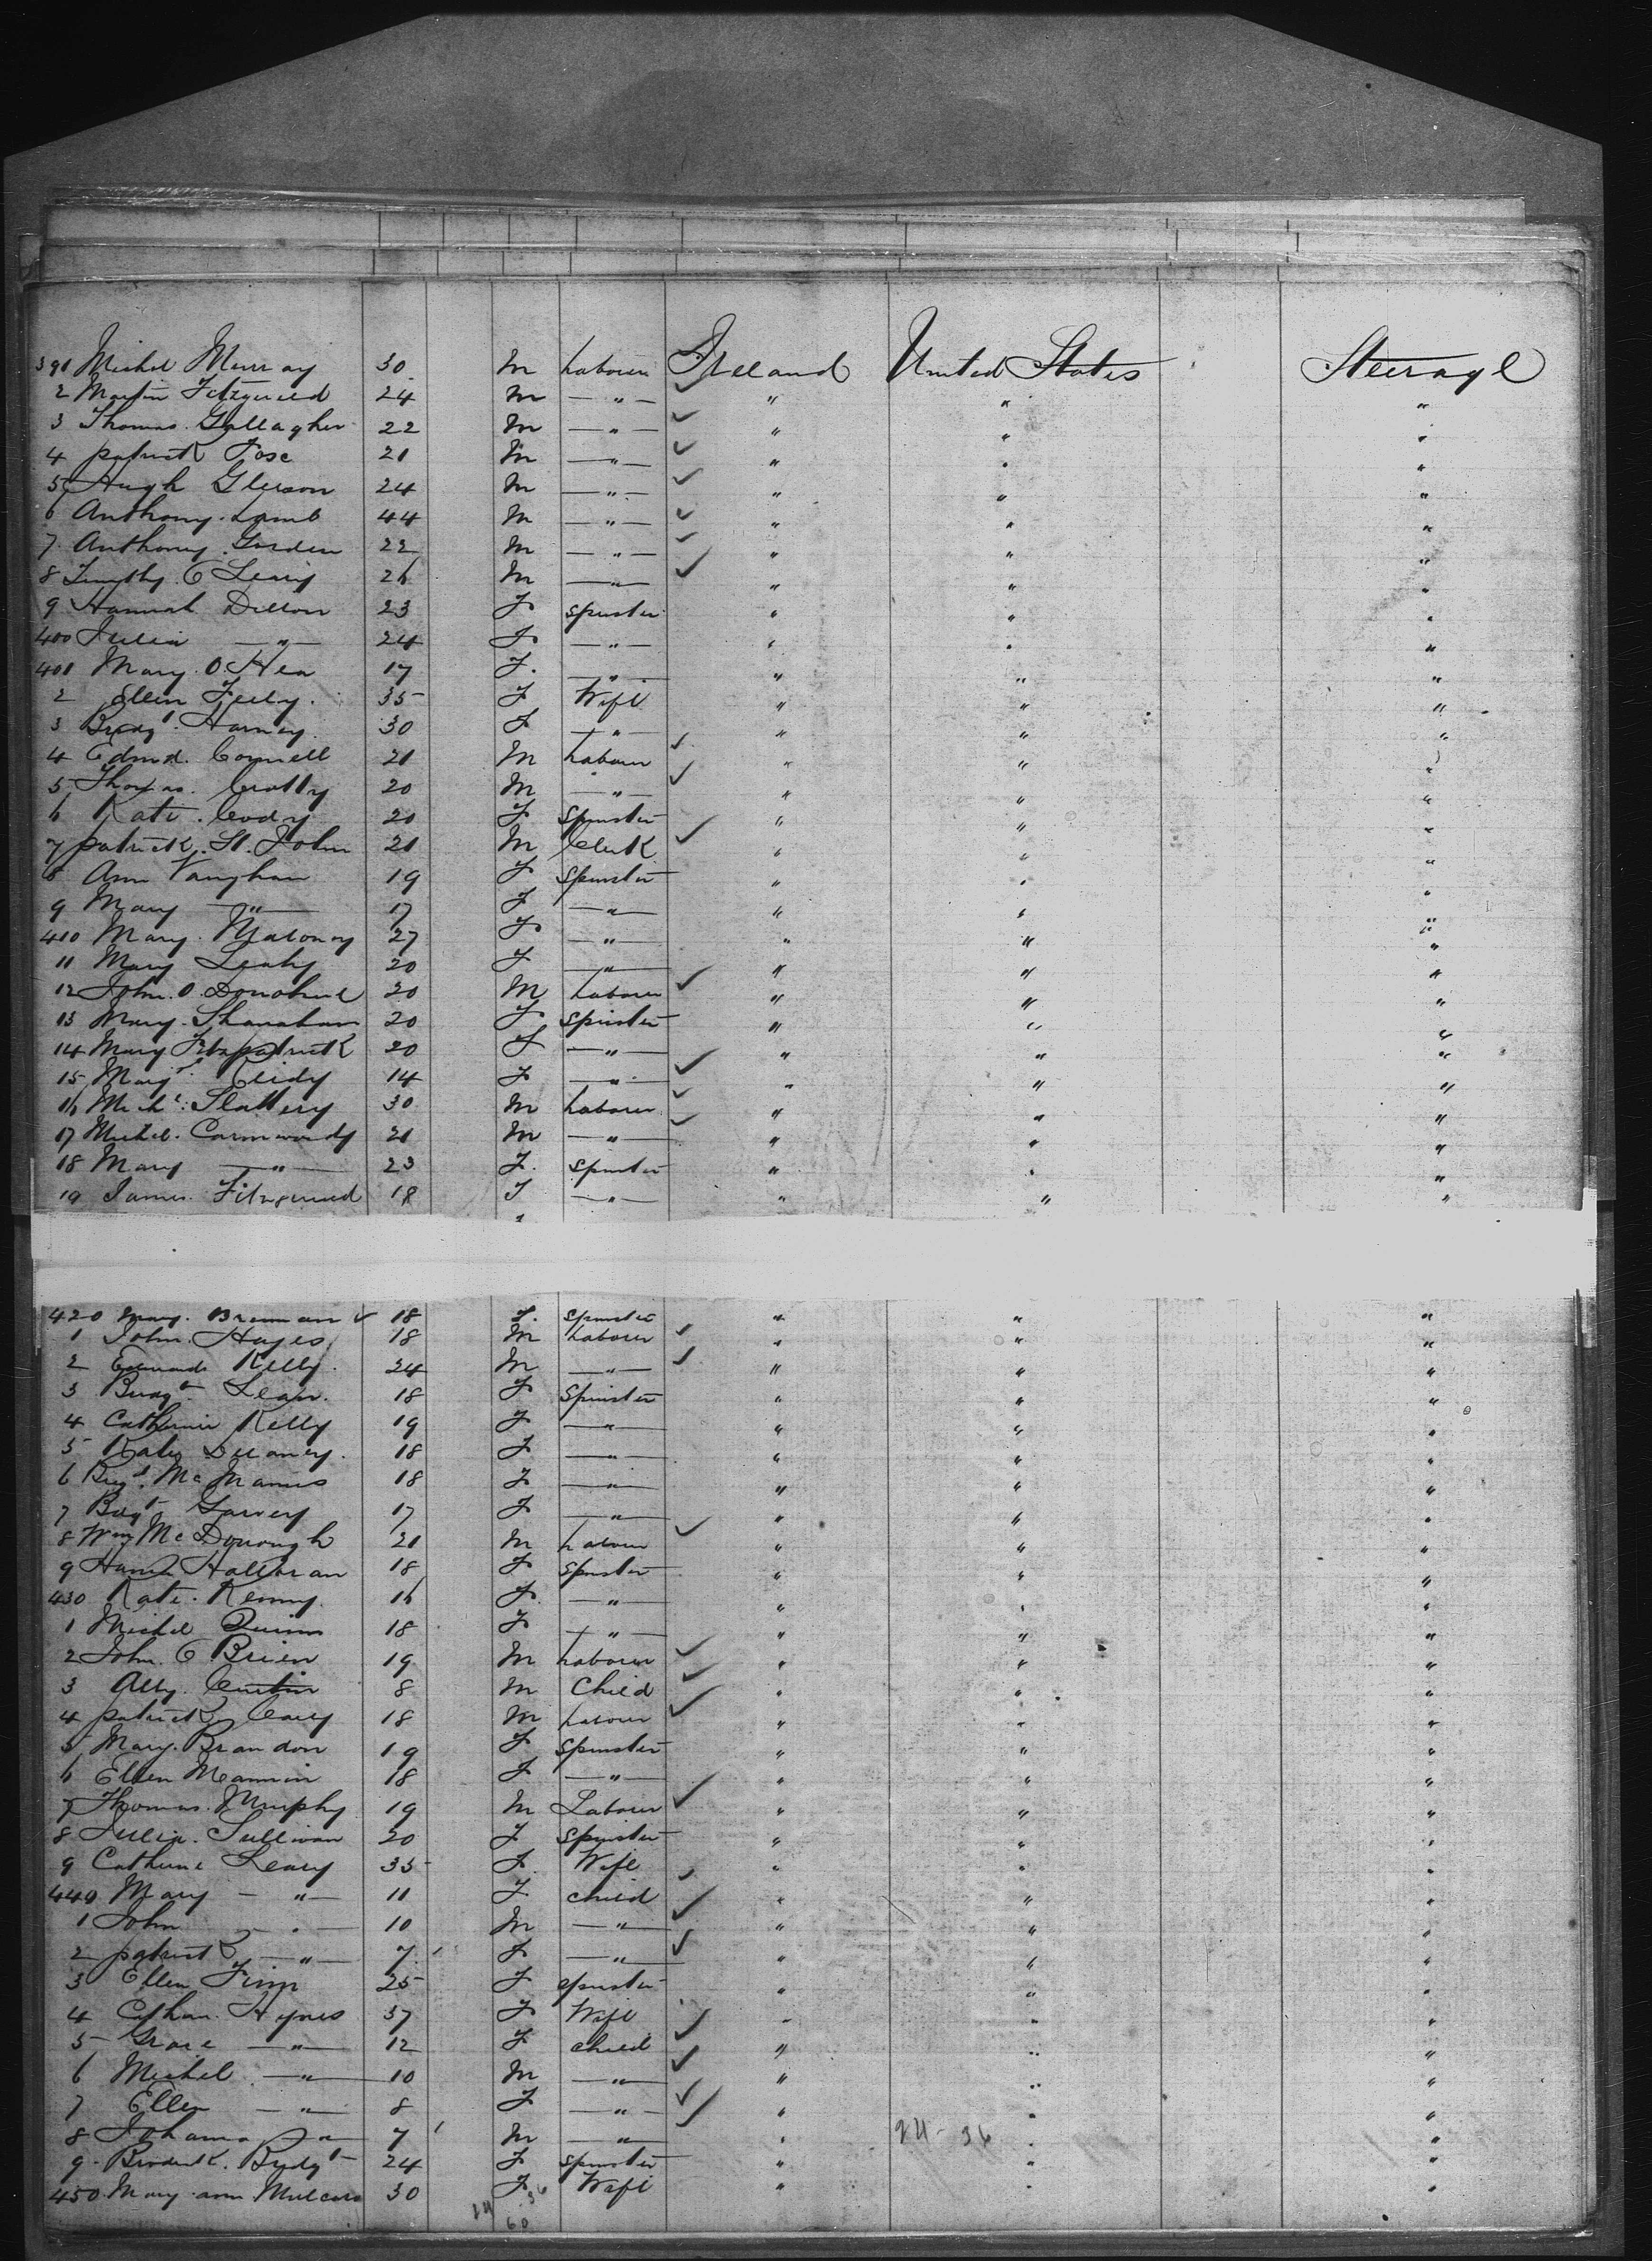 391 Michel Murray 30 M Labourer Ireland United States Steerage
2 Martin Fitzgerald 24 M — " — " " "
3 Thomas Gallagher 22 M — " — " " "
4 patrick 21 M — " — " " "
5 Hugh Gleeson 24 M — " — " " "
6 Anthony Lamb 44 M — " — " " "
7 Anthony Gorden 22 M — " — " " "
8 Timothy O Leary 26 M — " — " " "
9 Hannah Dillon 23 F Spinster " " "
400 Julia — " — 24 F — " — " " "
401 Mary O Hea 17 F. — " — " " "
2 Ellen Feely 35 F Wife " " "
3 Bridgt. Harney 30 F — " — " " "
4 Edmd. Connell 21 M Labourer " " "
5 Thomas Crotty 20 M — " — " " "
6 Kate Cody 20 F Spinster " " "
7 patrick St. John 21 M Clerk " " "
8 Ann Vaughan 19 F Spinster " " "
9 Mary — " — 17 F — " — " " "
410 Mary Maloney 27 F — " — " " "
11 Mary Leahy 20 F — " — " " "
12 John O Donohue 20 M Labourer " " "
13 Mary Shanahan 20 F Spinster " " "
14 Mary Fitzpatrick 20 F — " — " " "
15 Margt. 14 F — " — " " "
16 Michl. Slattery 30 M Labourer " " "
17 Michel 21 M — " — " " "
18 Mary — " — 23 F. Spinster " " "
19 James Fitzgerald 18 F — " — " " "
420 Mary Brennan ✓ 18 F. Spinster " " "
1 John Hayes 18 M Labourer " " "
2 Edmund Kelly 24 M — " — " " "
3 Bridgt. 18 F Spinster " " "
4 Catherine Kelly 19 F — " — " " "
5 Kate Delaney 18 F — " — " " "
6 Brigt. McManus 18 F — " — " " "
7 Bdgt Garvey 17 F — " — " " "
8 Wm McDonough 21 M Labourer " " "
9 Hanh Halloran 18 F Spinster " " "
430 Kate Kenny 16 F. — " — " " "
1 Michel Quinn 18 F — " — " " "
2 John O Brien 19 M Labourer " " "
3 Curtin 8 M Child " " "
4 patrick Carey 18 M Labourer " " "
5 Mary Brandon 19 F Spinster " " "
6 Ellen Mannin 18 F — " — " " "
7 Thomas Murphy 19 M Labourer " " "
8 Julia Sullivan 20 F Spinster " " "
9 Catherine Leary 35 F. Wife " " "
440 Mary — " — 11 F. child " " "
1 John — " — 10 M — " — " " "
2 patrick — " — 7 F — " — " " "
3 Ellen Finn 25 F spinster " " "
4 Cathan. Hynes 37 F Wife " " "
5 Grace — " — 12 F child " " "
6 Michel — " — 10 M — " — " " "
7 Ellen — " — 8 F — " — " " "
8 Johanna — " — 7 M — " — " 24 - 36 " "
9 Broderick Bridgt 24 F spinster " " "
450 Mary ann 30 F Wife " " "
24 36
60